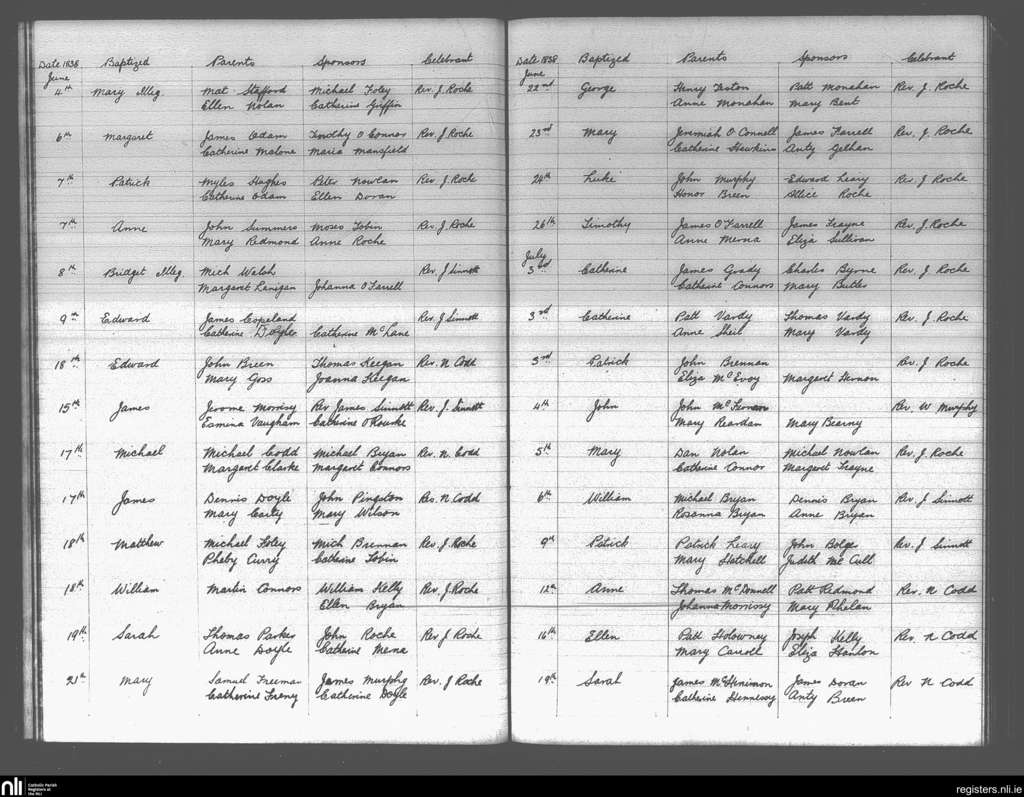 Date 1838 Baptized Parents Sponsors Celebrant
June
4th Mary Illeg. Mat Stafford Michael Foley Rev. J. Roche
Ellen Nolan Catherine Griffin
6th Margaret James Odam Dorothy O Connor Rev. J. Roche
Catherine Malone Maria Mansfield
7th Patrick Myles Hughes Peter Nowlan Rev. J. Roche
Catherine Odam Ellen Doran
7th Anne John Summers Moses Tobin Rev. J. Roche
Mary Redmond Anne Roche
8th Bridget Illeg. Mich Walsh Rev. J. Sinnott
Margaret Lanigan Johanna O'Farrell
9th Edward James Copeland Rev. J. Sinnott
Catherine Doyle Catherine McLane
18th Edward John Breen Thomas Keegan Rev. N. Codd
Mary Goss Joanna Keegan
15th James Jerome Morrisy Rev James Sinnott Rev. J. Sinnott
Esmina Vaugham Catherine O'Rourke
17th Michael Michael Codd Michael Bryan Rev. N. Codd
Margaret Clarke Margaret Connors
17th James Dennis Doyle John Pingston Rev. N. Codd
Mary Carty Mary Wilson
18th Matthew Michael Foley Mich Brennan Rev. J. Roche
Pheby Curry Catherine Tobin
18th William Martin Connors William Kelly Rev. J. Roche
Ellen Bryan
19th Sarah Thomas Parker John Roche Rev. J. Roche
Anne Doyle Catherine Merna
21st Mary Samuel Freeman James Murphy Rev. J. Roche
Catherine Freny Catherine Doyle
Date 1838 Baptized Parents Sponsors Celebrant
June
22nd George Henry Teston Patt Monahan Rev. J. Roche
Anne Monahan Mary Bent
23rd Mary Jeremiah O'Connell James Farrell Rev. J. Roche
Catherine Hawkins Anty Gelhan
24th Luke John Murphy Edward Leary Rev. J. Roche
Honor Breen Allice Roche
26th Timothy James O'Farrell James Trayne Rev. J. Roche
Anne Merna Eliza Sullivan
July
3rd Catherine James Grady Charles Byrne Rev. J. Roche
Catherine Connors Mary Butler
3rd Catherine Patt Vardy Thomas Vardy Rev. J. Roche
Anne Sheil Mary Vardy
3rd Patrick John Brennan Rev. J. Roche
Eliza McEvoy Margaret Hernon
4th John John Rev. W Murphy
Mary Reardan Mary Bearny
5th Mary Dan Nolan Michael Nowlan Rev. J. Roche
Catherine Connor Margaret Trayne
6th William Michael Bryan Dennis Bryan Rev. J. Sinnott
Rosanna Bryan Anne Bryan
9th Patrick Patrick Leary John Bolge Rev. J. Sinnott
Mary Hatchell Judith Mc Cull
12th Anne Thomas McDonnell Patt Redmond Rev. N. Codd
Johanna Morrissy Mary Phelan
16th Ellen Patt Holowney Joseph Kelly Rev. N Codd
Mary Carroll Eliza Hanlon
19th Sarah James McHenimon James Doran Rev N. Codd
Catherine Hennessy Anty Breen
nli Catholic Parish Registers at the NLI registers.nli.ie